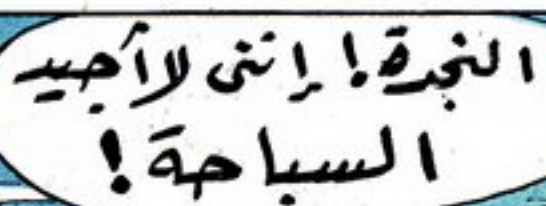 النجدة! إننى لا أجيد
السباحة!